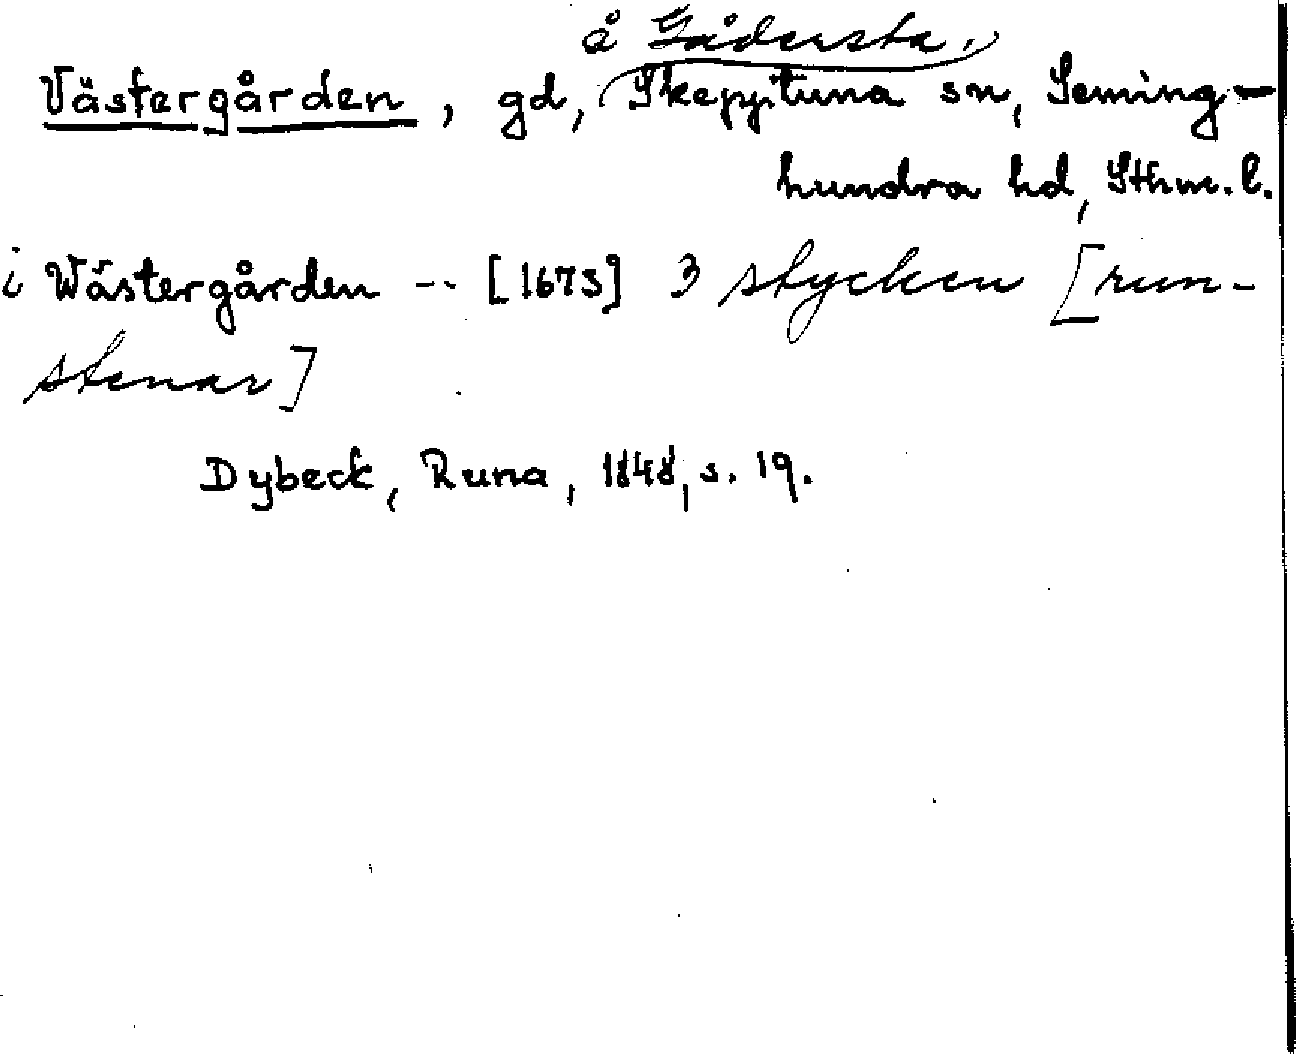 å Gådersta,
Västergården, gd, Skepptuna sn, Seming-
hundra hd, Sthm. l.
i Wästergården -- [1673] 3 stycken [run-
stenar]
Dybeck, Runa, 1848, s. 19.